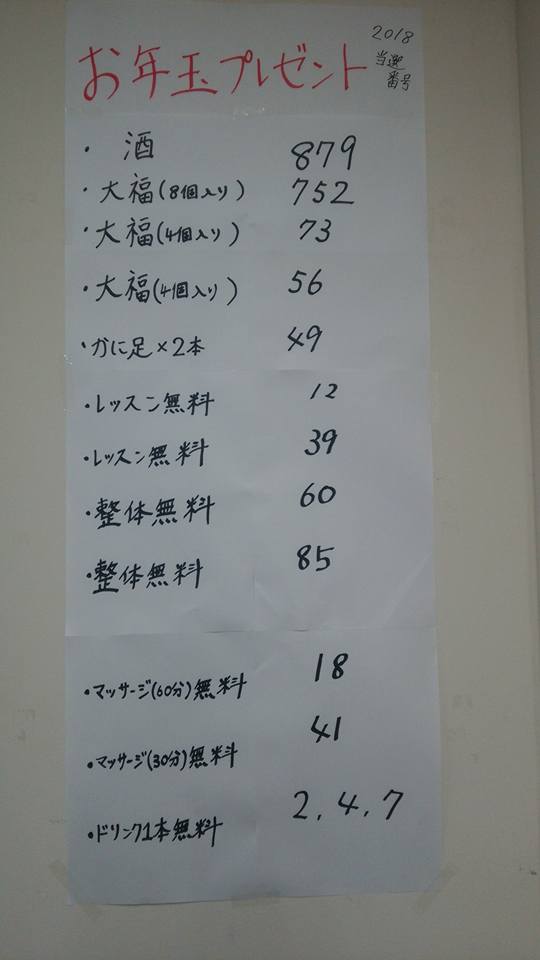 お年玉プレゼント
2018
当選
番号
・酒 879
・大福(8個入り) 752
・大福(4個入り) 73
・大福(4個入り) 56
・かに足×2本 49
・レッスン無料 12
・レッスン無料 39
・整体無料 60
・整体無料 85
・マッサージ(60分)無料 18
・マッサージ(30分)無料 41
・ドリンク1本無料 2.4.7